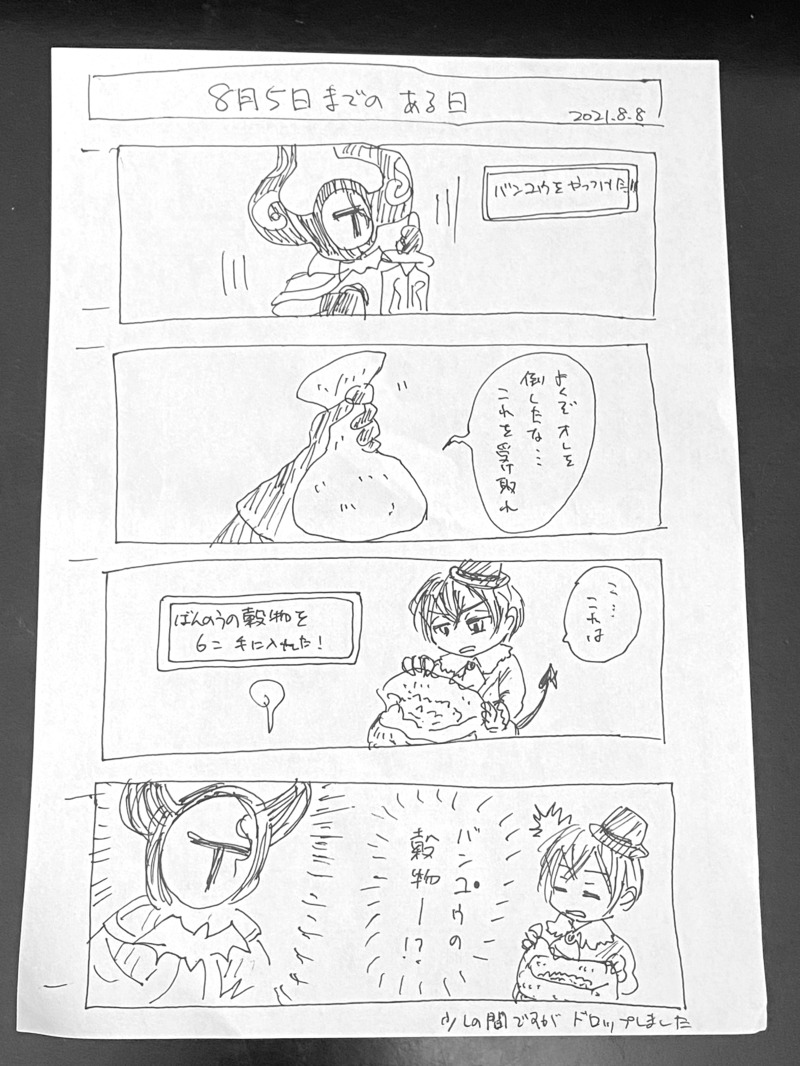 8月5日までの ある日
2021.8.8
バンユウをやっつけた!!
よくぞオレを
倒したな…
これを受取れ
こ…
これは
ばんのうの穀物を
6こ 手に入れた!
バンユウの
穀物ー!?
少しの間ですが ドロップしました